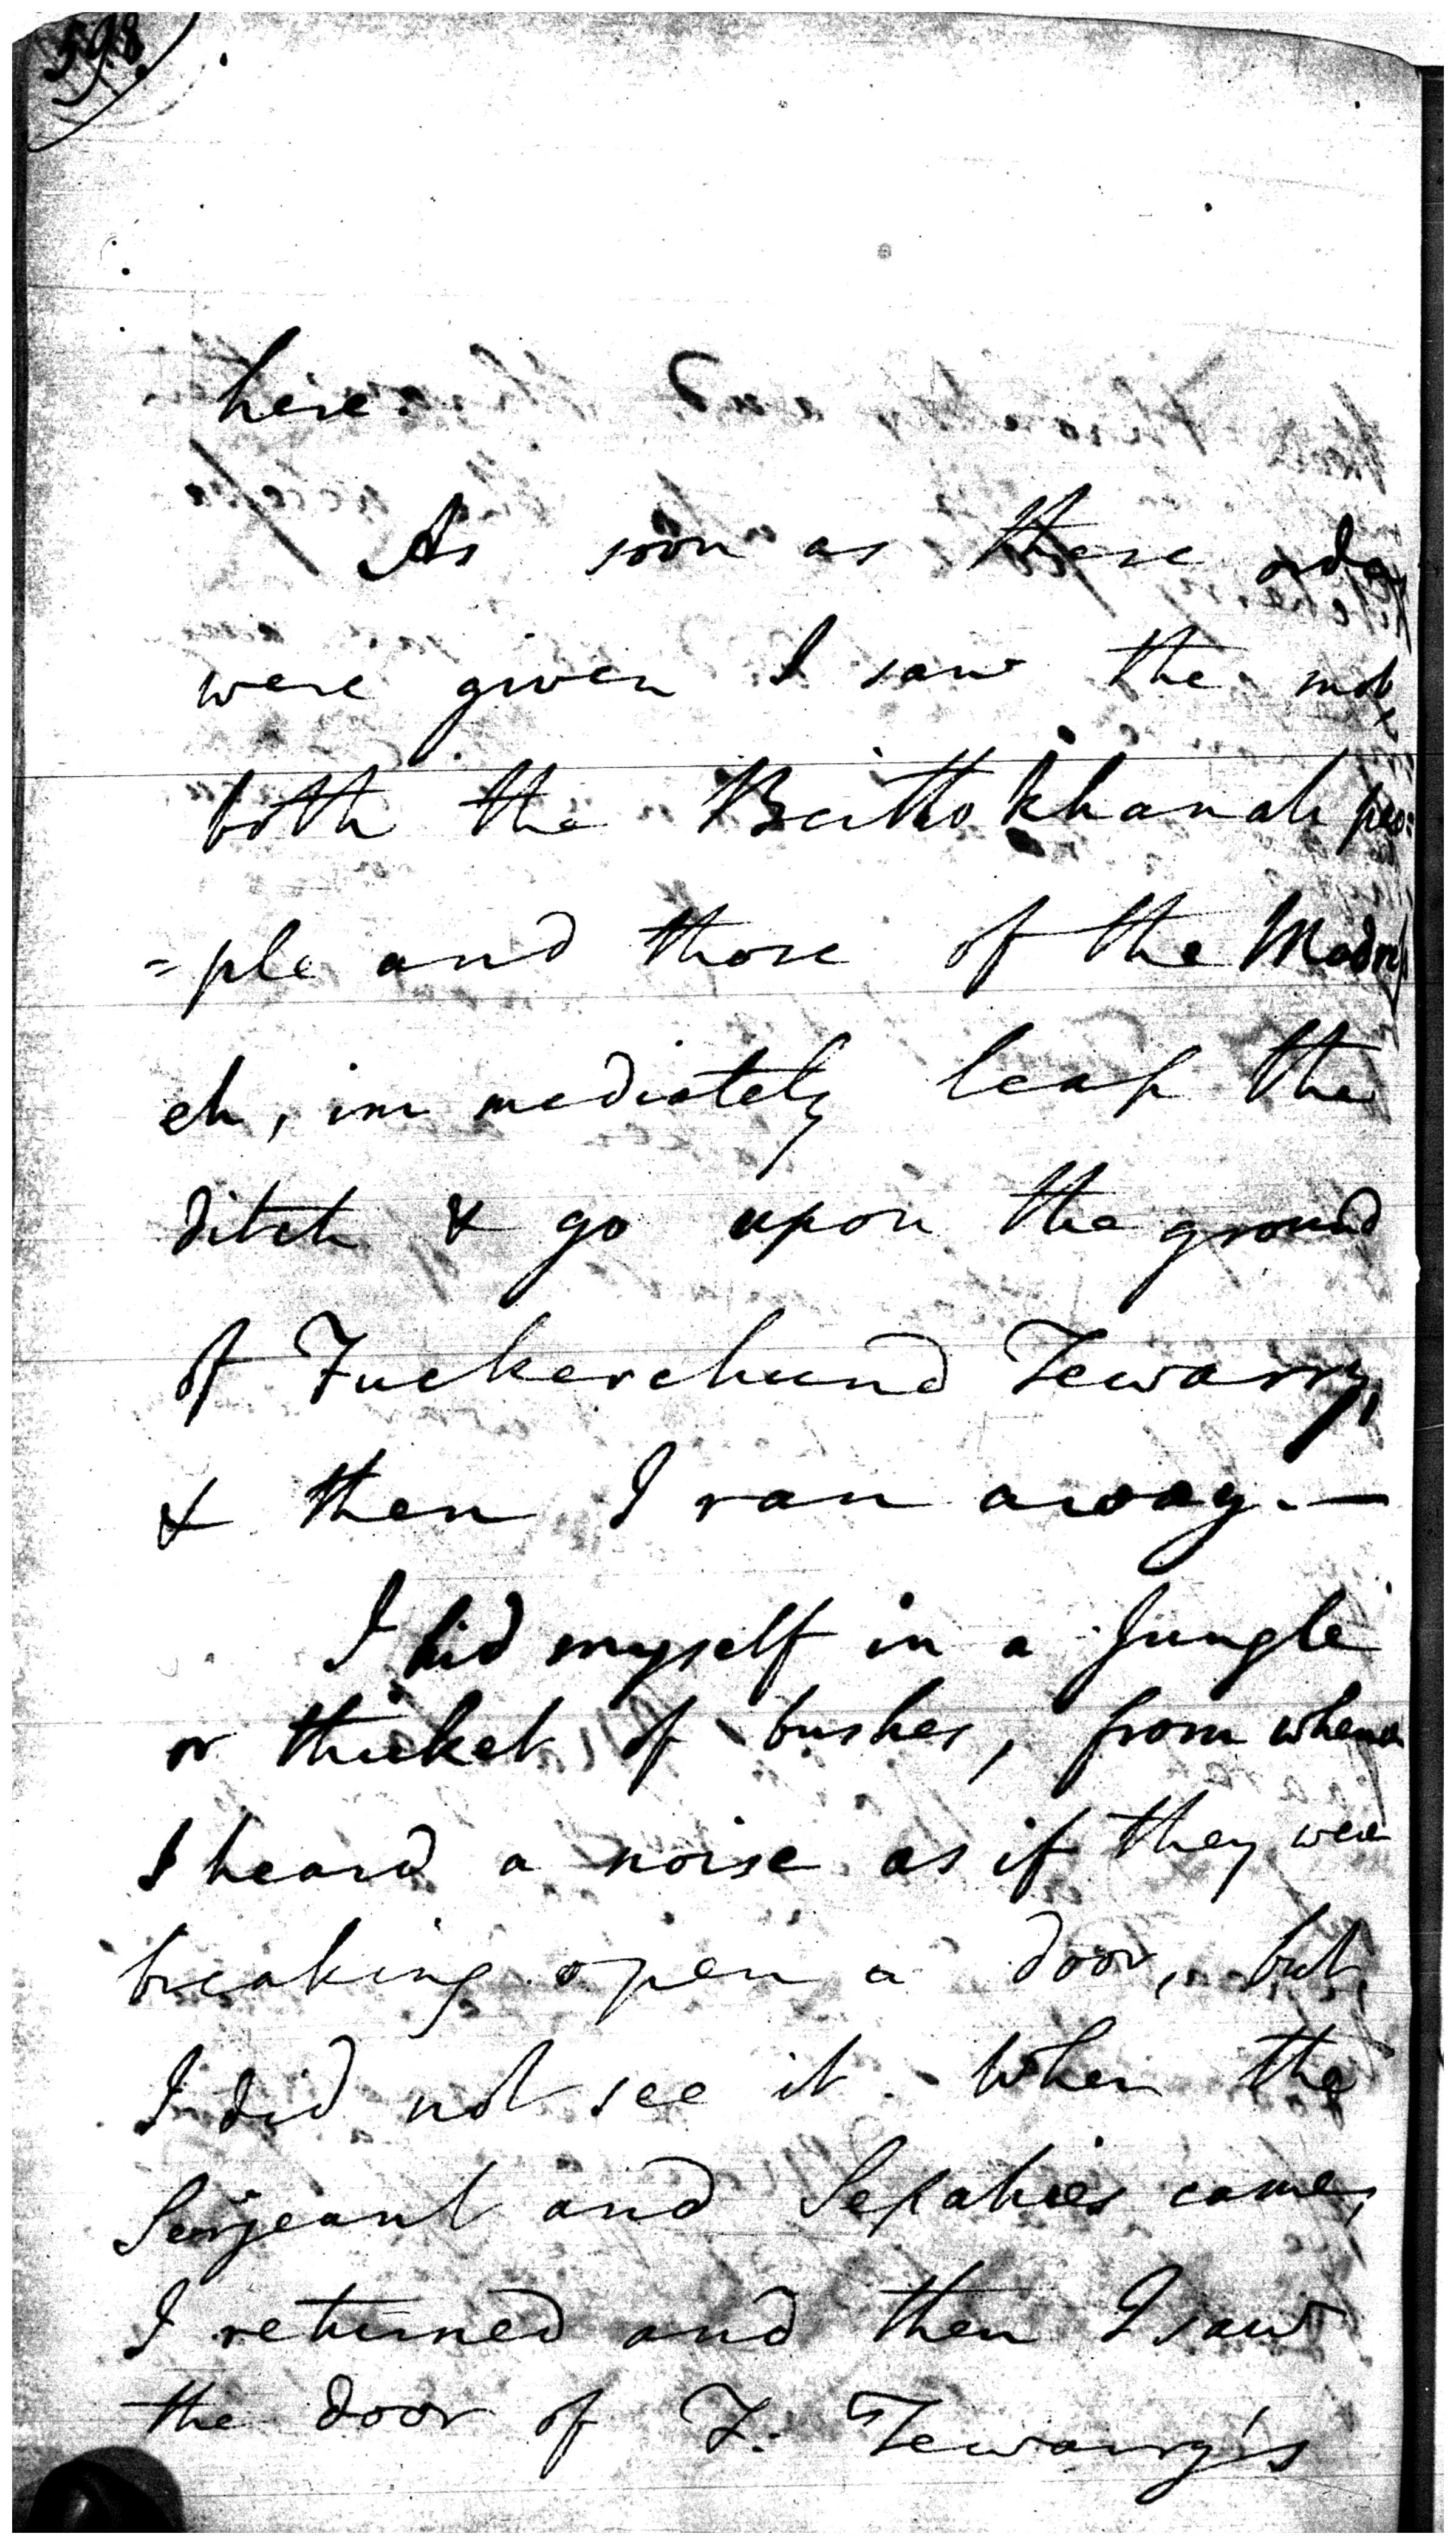 598.
here.
As soon as these orders
were given I saw the mob,
both the Beittokhanah peo=
=ple and those of the Madris
eh, immediately leap the
ditch & go upon the ground
of Fuckerchund Tewarry,
& then I ran away. —
I hid myself in a Jungle
or thicket of bushes, from whence
I heard a noise as if they were
breaking open a door, but,
I did not see it. When the
Serjeant and Sepahies came,
I returned and then I saw
the door of F. Tewarry's